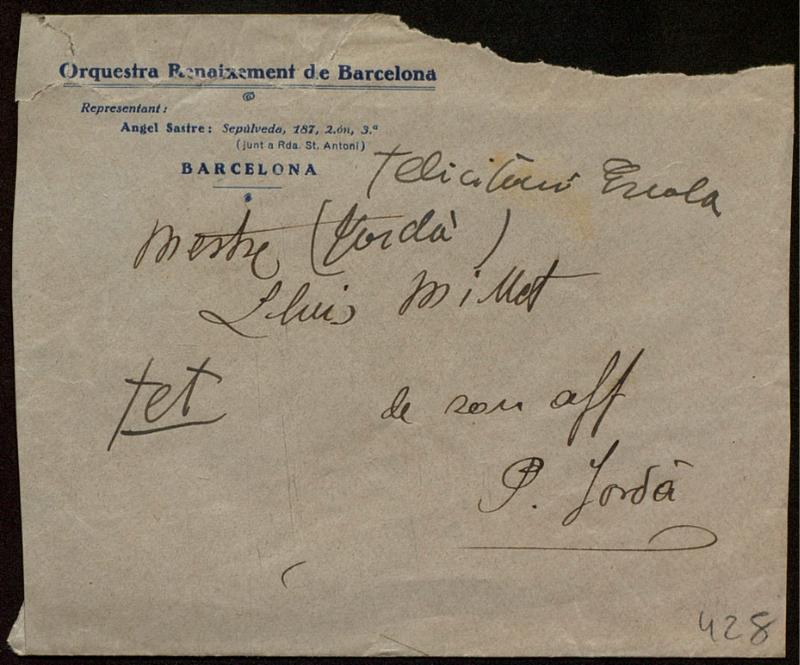 Orquestra Renaixement de Barcelona
Representant:
Angel Sastre: Sepúlveda, 187, 2.ón, 3.ª
(junt a Rda. St. Antoni)
BARCELONA
Escola
Mestre (Jordà)
Lluis Millet
fet
de son aff
P. Jordà
428